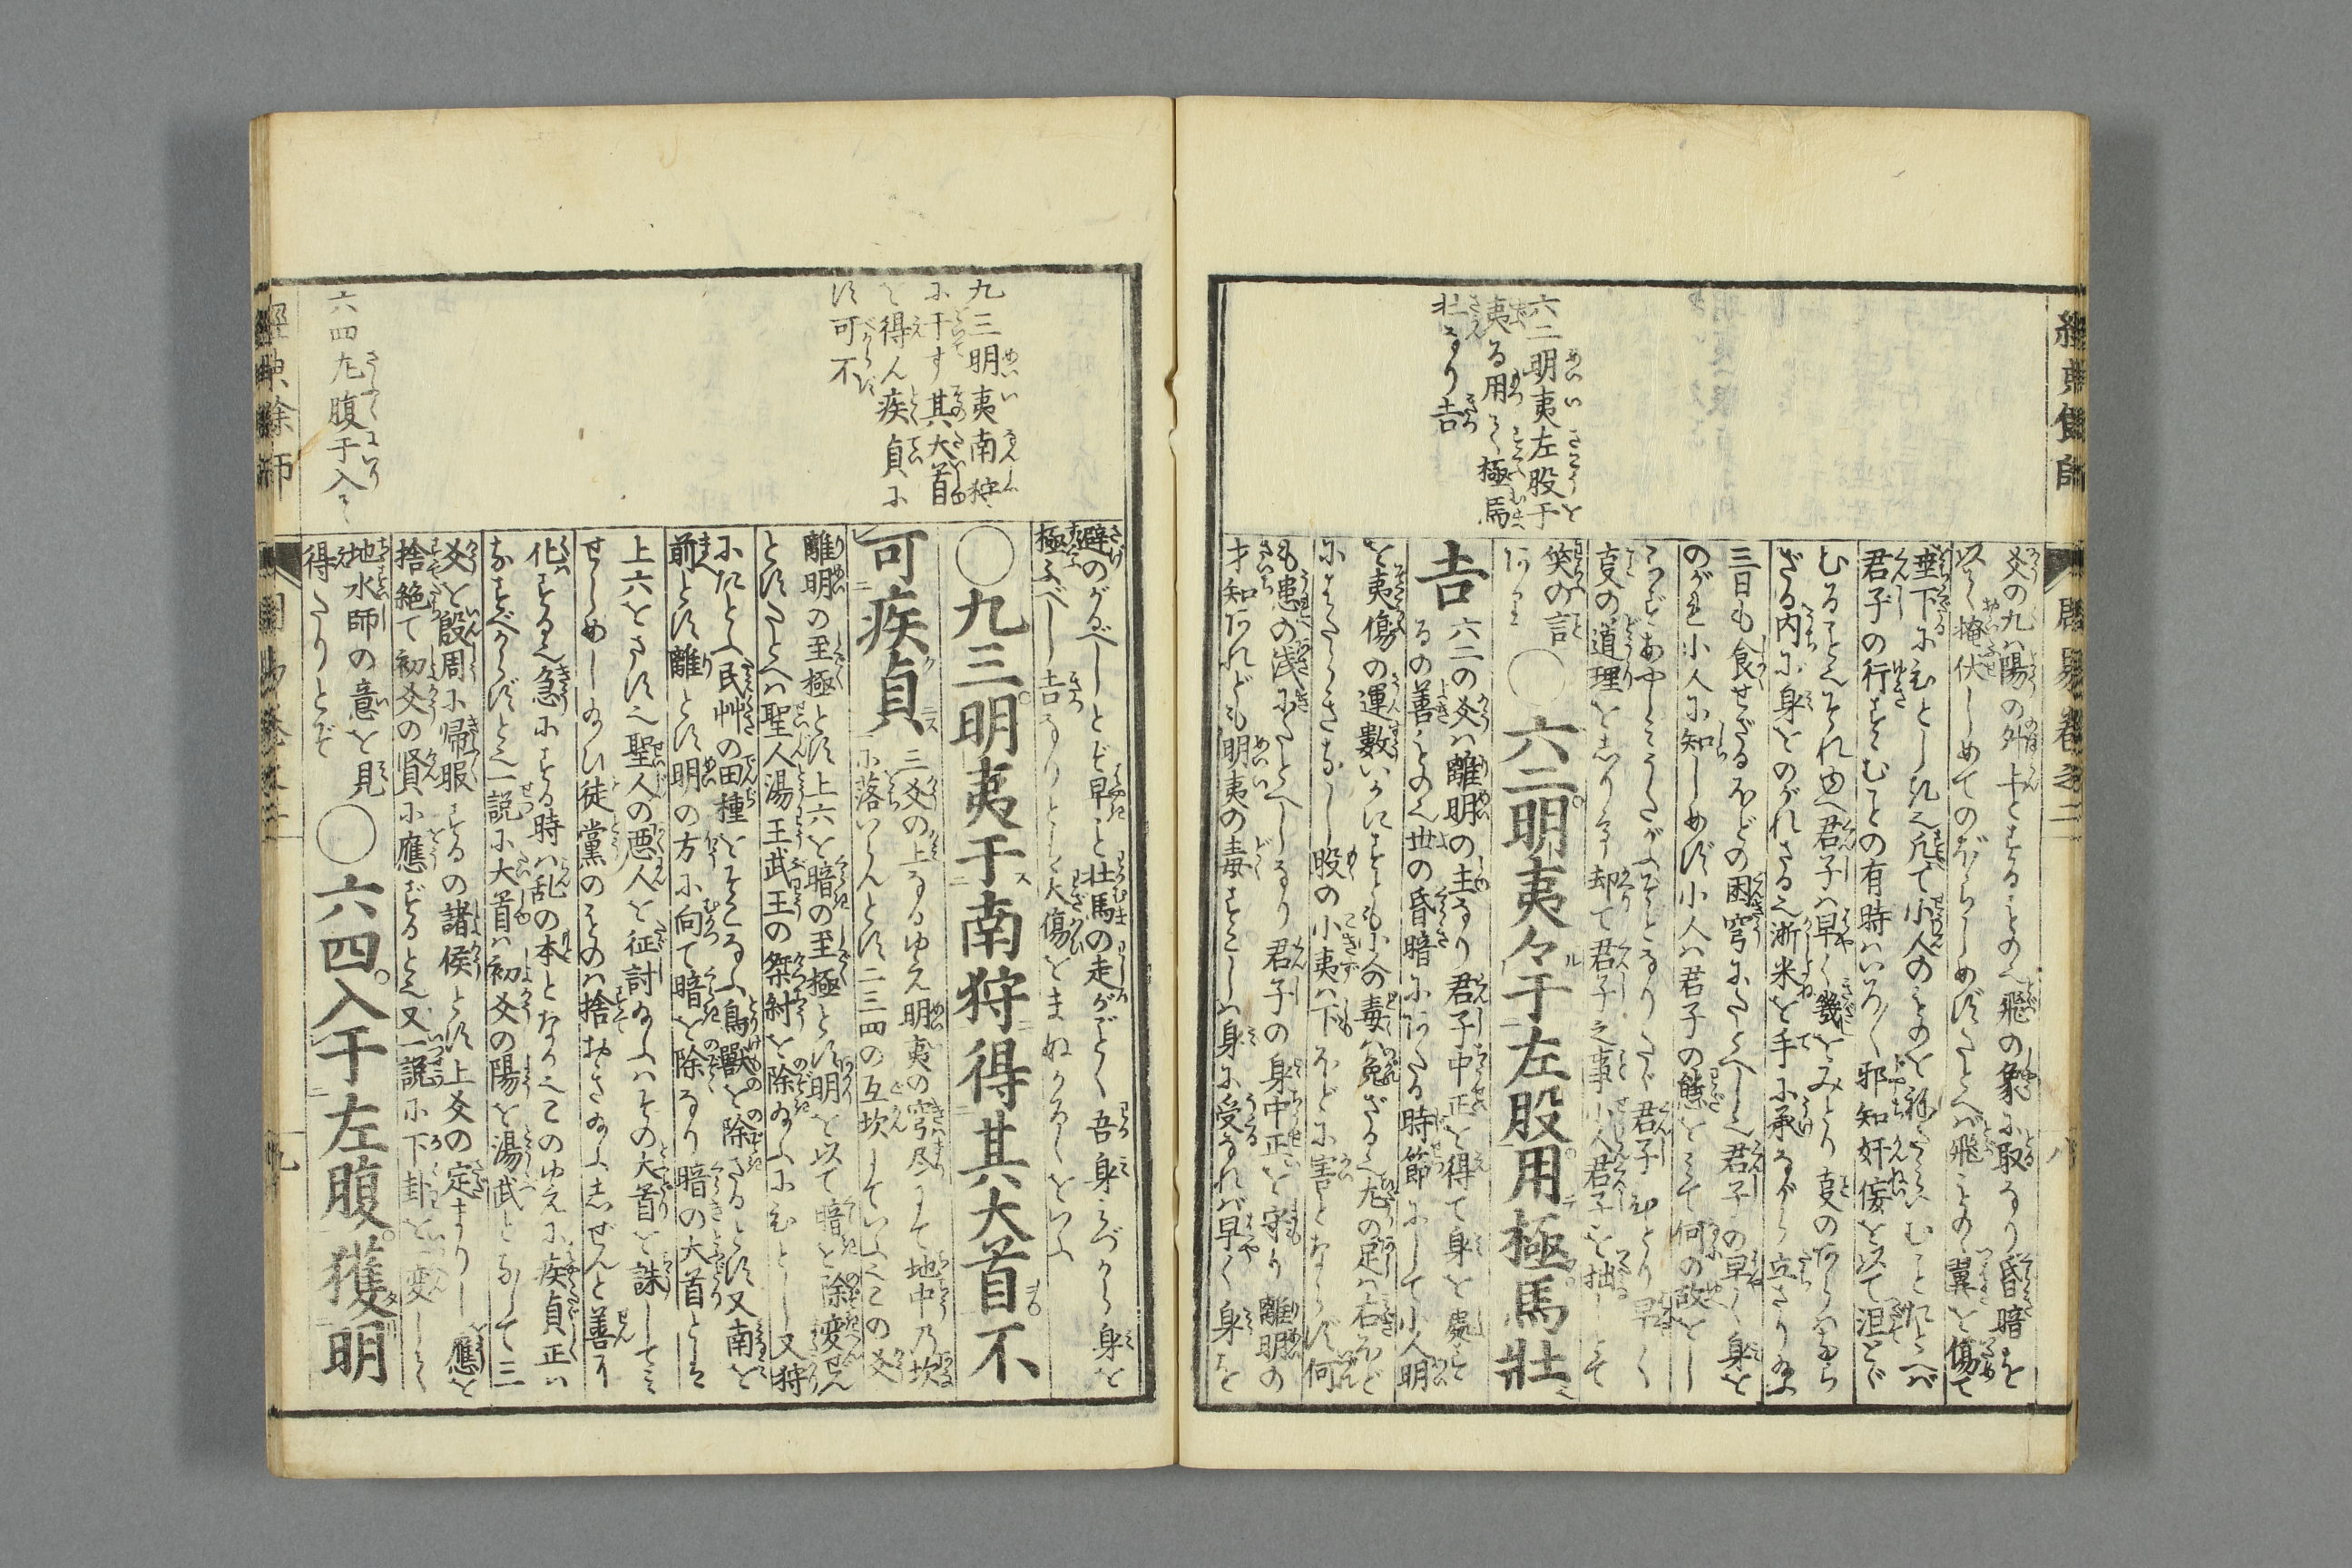 經典餘師
周易卷之二
八
六二明夷左股于
夷る用て極馬
壮なり吉
爻の九ハ陽の外卞とするもの也飛の象に取なり昏暗を
以て掩伏しめてのぼらしめずたとへば飛もの翼を傷て
君子の行すすむとの有時ハいろ〳〵邪知奸佞を以て沮とゞ
ざる内に身をのがれさる也淅米を手に承ながら立さり給ふ
三日も食せざるほどの困窮にたとへし也君子の早く身を
のがれ小人に知しめず小人ハ君子の態をみて何の故とし
叓の道理をしりらず却て君子之事小人君子を拙しとて
笑の言
〇六二明夷々于左股用極馬壯
吉
六二の爻ハ離明の主なり君子中正を得て身を處す
るの善もの也世の昏暗にあたる時節にして小人明
を夷傷の運數いかにすとも小人の毒ハ免ざる也左の足ハ右ほど
にはたらきなし股の小夷ハ下ほどに害とならず何
も患の浅にたとへしなり君子の身中正を守り離明の
才知あれども明夷の毒すこしハ身に受なれバ早く身を
九三明夷南狩
に于す其大首
を得ん疾貞に
す可不
六四左腹于入て
避のがるべしとぞ早こと壮馬の走がごとく吾身みづから身を
極ふべし吉なりとし大傷をまぬかるゝをいふ
〇九三明夷于南狩得其大首不
可疾貞
三爻の上なるゆえ明夷の窮尽にて地中乃坎
に落いらんとす二三四の互坎していふ也この爻
離明の至極とす上六を暗の至極とす明を以て暗を除変せん
とすたとへハ聖人湯王武王の桀紂を除給ふにひとし又狩
にたとふ民艸の田種をそこなふ鳥獸を除さるとす又南を
前とす離とす明の方に向て暗を除なり暗の大首とハ
上六をさす也聖人の悪人を征討給ふハその大首を誅してミ
せしめし給ひ徒黨のものハ捨おき給ふしぜんと善に
化する也急にする時ハ乱の本となる也このゆえに疾貞正ハ
なすべからずと也一説に大首ハ初爻の陽を湯武となして三
爻を殷周に帰服するの諸侯とす上爻の定まりし應を
捨絶て初爻の賢に應ずると也又一説に下卦を変して
地水師の意を見
得たりとぞ
〇六四入于左腹獲明
經典餘師
周易卷之二
九